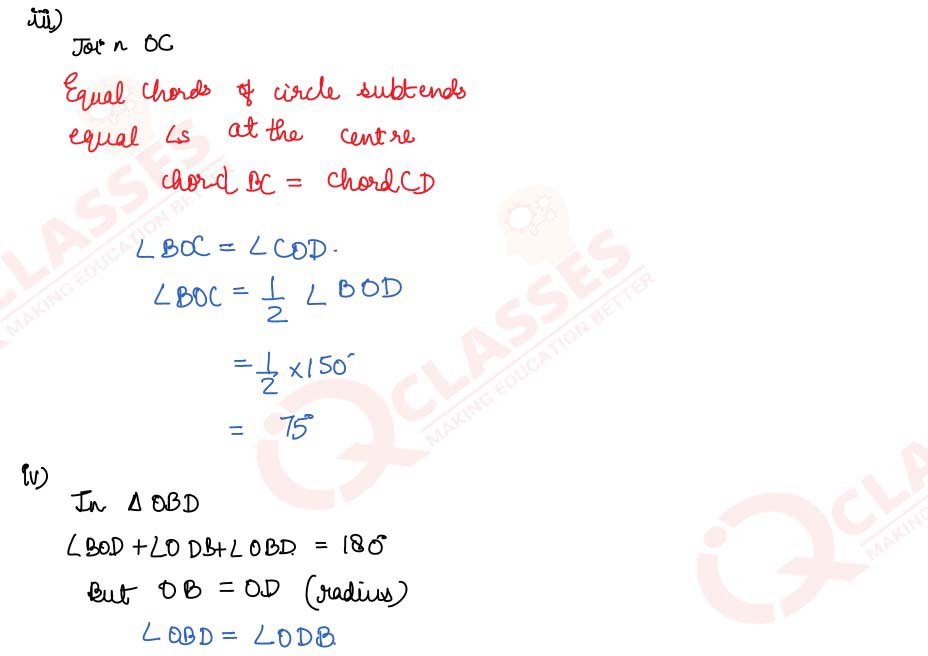 iii)
Join OC
Equal chords of circle subtends
equal ∠s at the centre
chord BC = chord CD
∠BOC = ∠COD.
∠BOC = 1/2 ∠BOD
= 1/2 × 150°
= 75°
iv)
In Δ OBD
∠BOD + ∠ODB + ∠OBD = 180°
But OB = OD (radius)
∠OBD = ∠ODB.
CLASSES
MAKING EDUCATION BETTER
iQ CLASSES
MAKING EDUCATION BETTER
iQ CLAS
MAKING